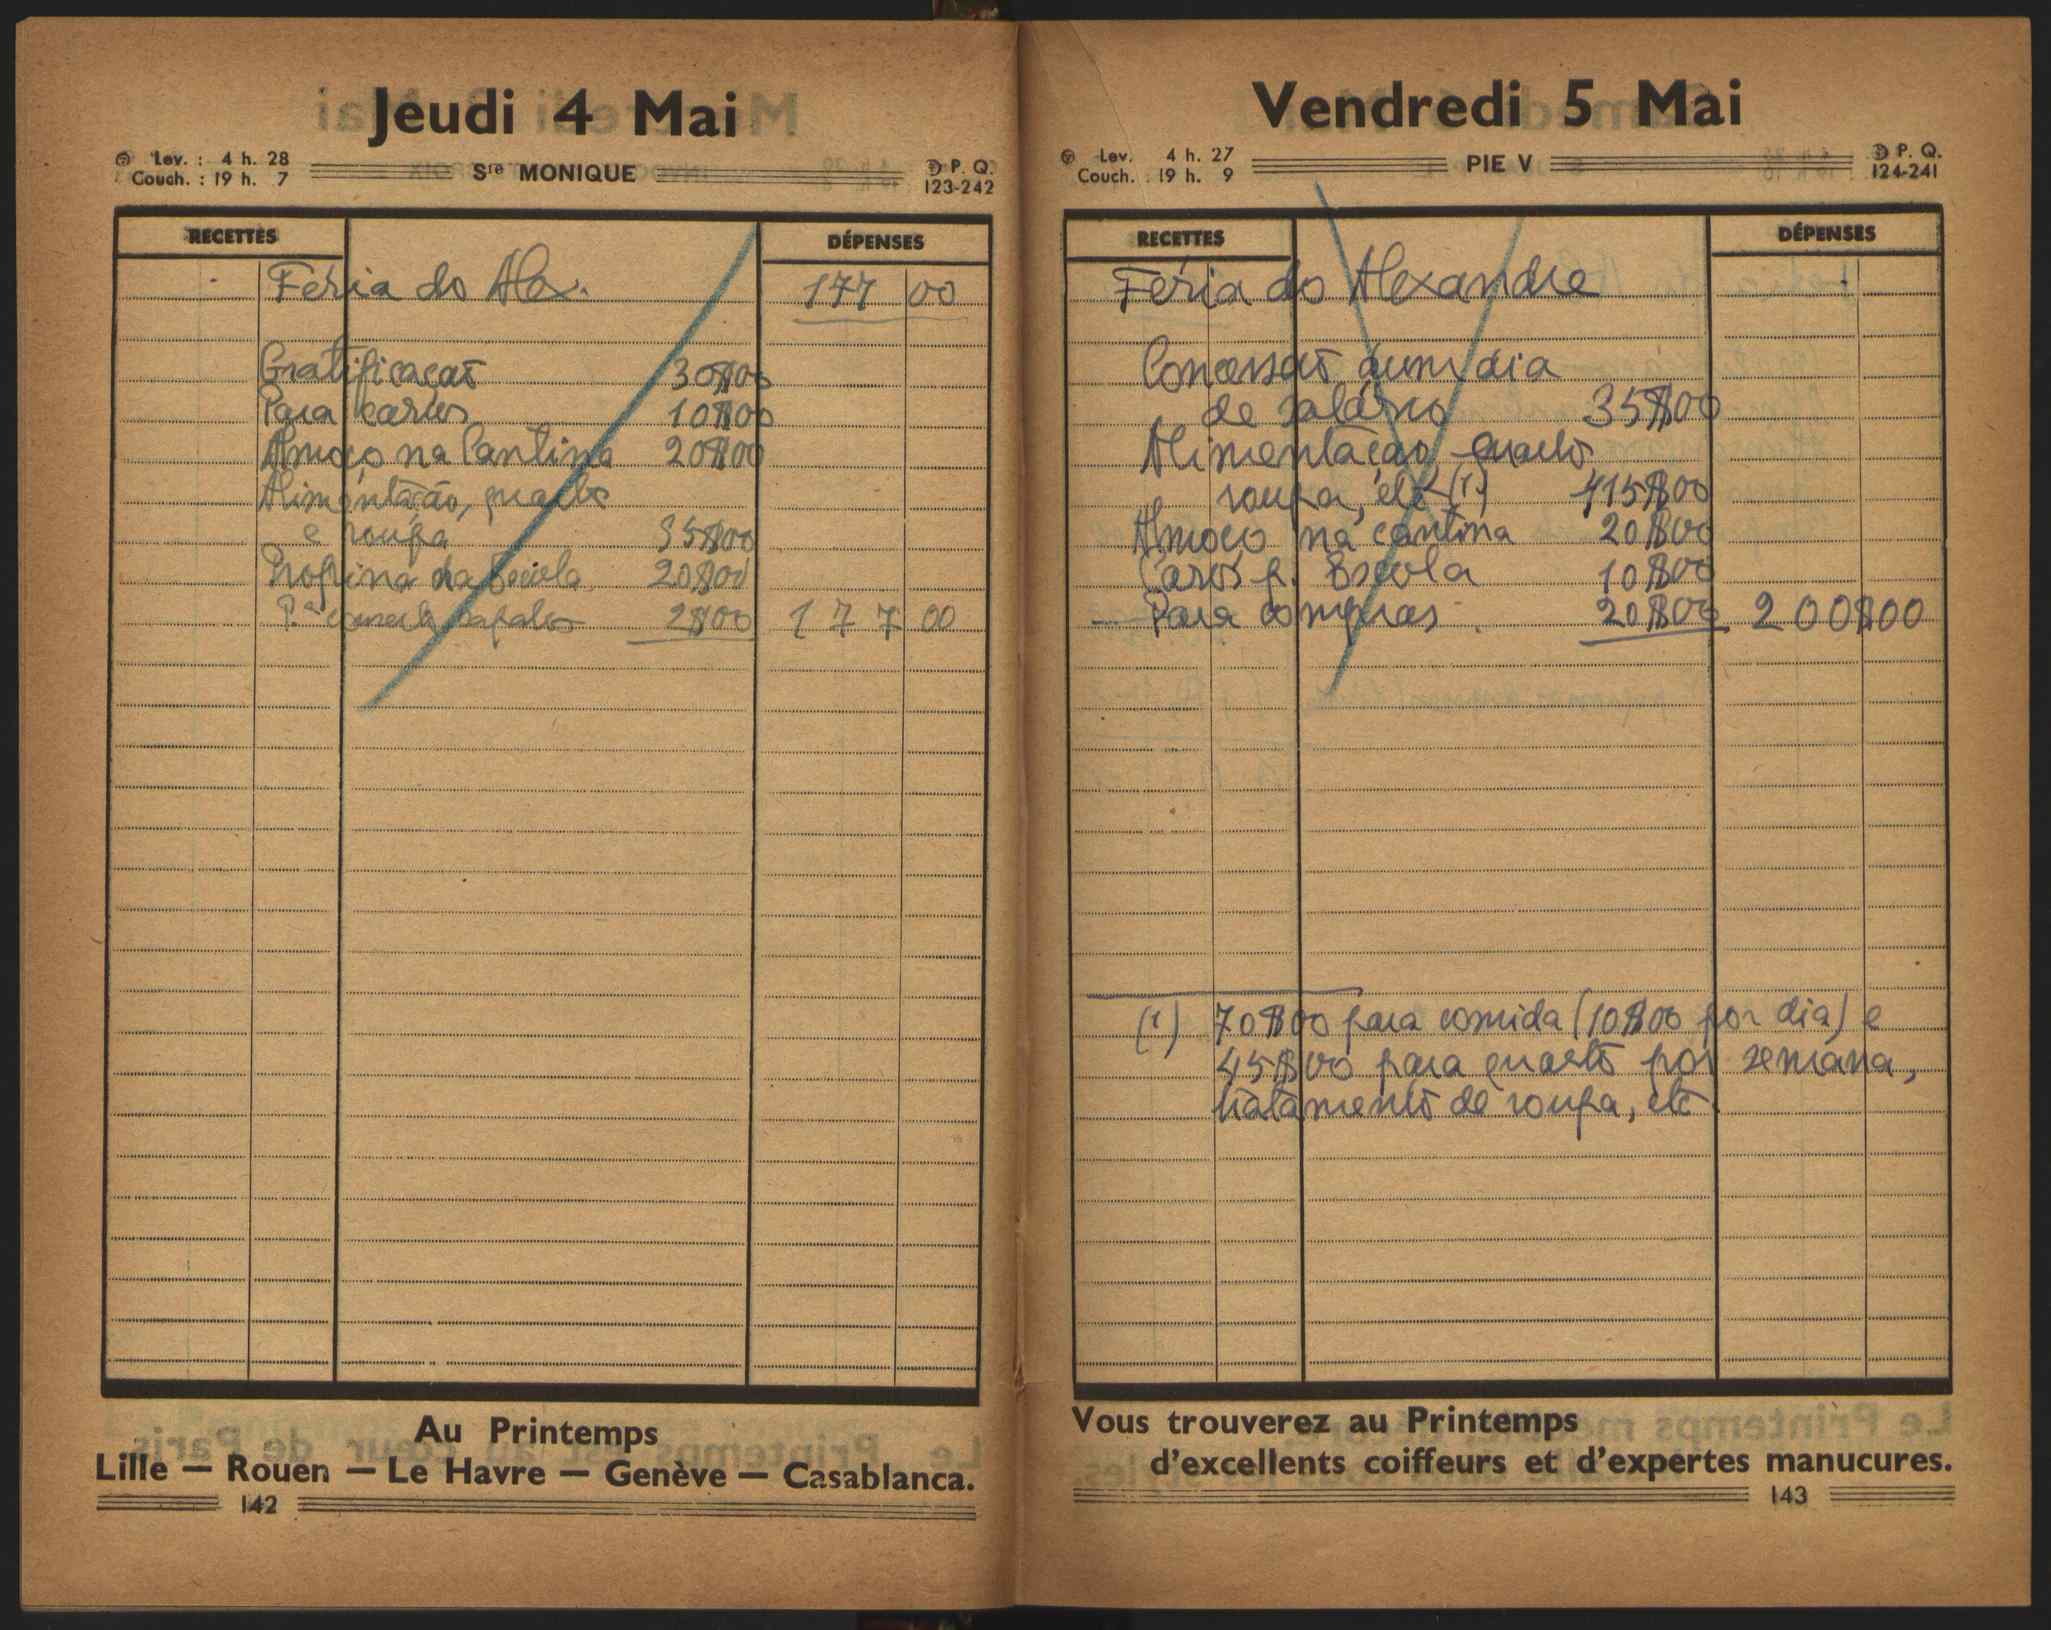 Jeudi 4 Mai
Lev. : 4 h. 28
Couch. : 19 h. 7
Ste MONIQUE
P. Q.
123-242
RECETTES
DÉPENSES
Féria do Alex. 177 00
Gratificação 30$00
Para carros 10$00
Almoço na Cantina 20$00
Alimentação, quarto
e roupa 35$00
Propina da Escola 20$00
P.ª sapatos 2$00 177 00
Au Printemps
Lille — Rouen — Le Havre — Genève — Casablanca.
142
Vendredi 5 Mai
Lev. 4 h. 27
Couch. : 19 h. 9
PIE V
P. Q.
124-241
RECETTES
DÉPENSES
Féria do Alexandre
Concessão dum dia
de salário 35$00
Alimentação quarto,
roupa, etc (1) 115$00
Almoço na cantina 20$00
Carros p. Escola 10$00
Para compras 20$00 200$00
(1) 70$00 para comida (10$00 por dia) e
45$00 para quarto por semana,
tratamento de roupa, etc
Vous trouverez au Printemps
d'excellents coiffeurs et d'expertes manucures.
143